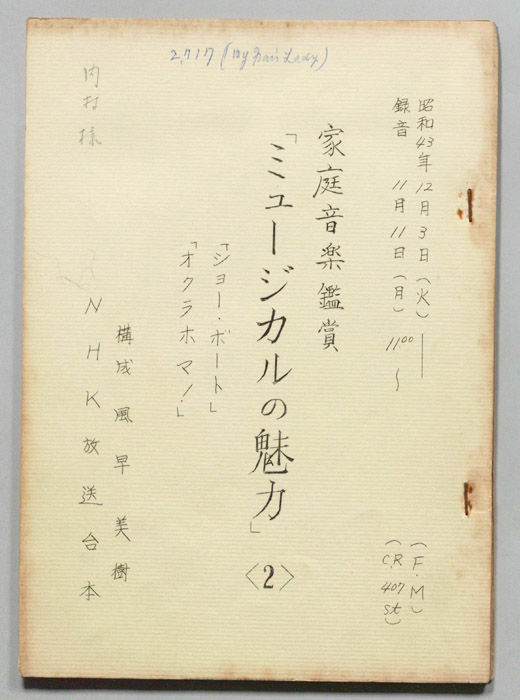 2,717 (My Fair Lady)
昭和43年12月3日(火)― (F.M)
録音 11月11日(月) 11:00~ (C.R 407 St)
家庭音楽鑑賞
「ミュージカルの魅力」〈2〉
「ショー・ボート」
「オクラホマ!」
構成 風早美樹
NHK放送台本
内村様